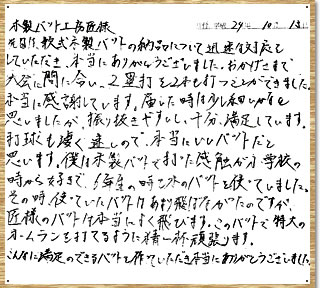 木製バット工房匠様
平成29年10月13日
先日は、軟式木製バットの納品について迅速な対応を
していただき、本当にありがとうございました。おかげさまで
大会に間に合い、2塁打を2本も打つことができました。
本当に感謝しています。届いた時は少し細いかなと
思いましたが、振り抜きやすいし、十分、満足しています。
打球も凄く速しので、本当にいいバットだと
思います。僕は木製バットで打った感触が小学校の
時から好きで、5年生の時も木のバットを使っていました。
その時使っていたバットはあまり飛ばなかったのですが、
匠様のバットは本当によく飛びます。このバットで特大の
ホームランを打てるように精一杯頑張ります。
こんなに満足のできるバットを作っていただき本当にありがとうございました。